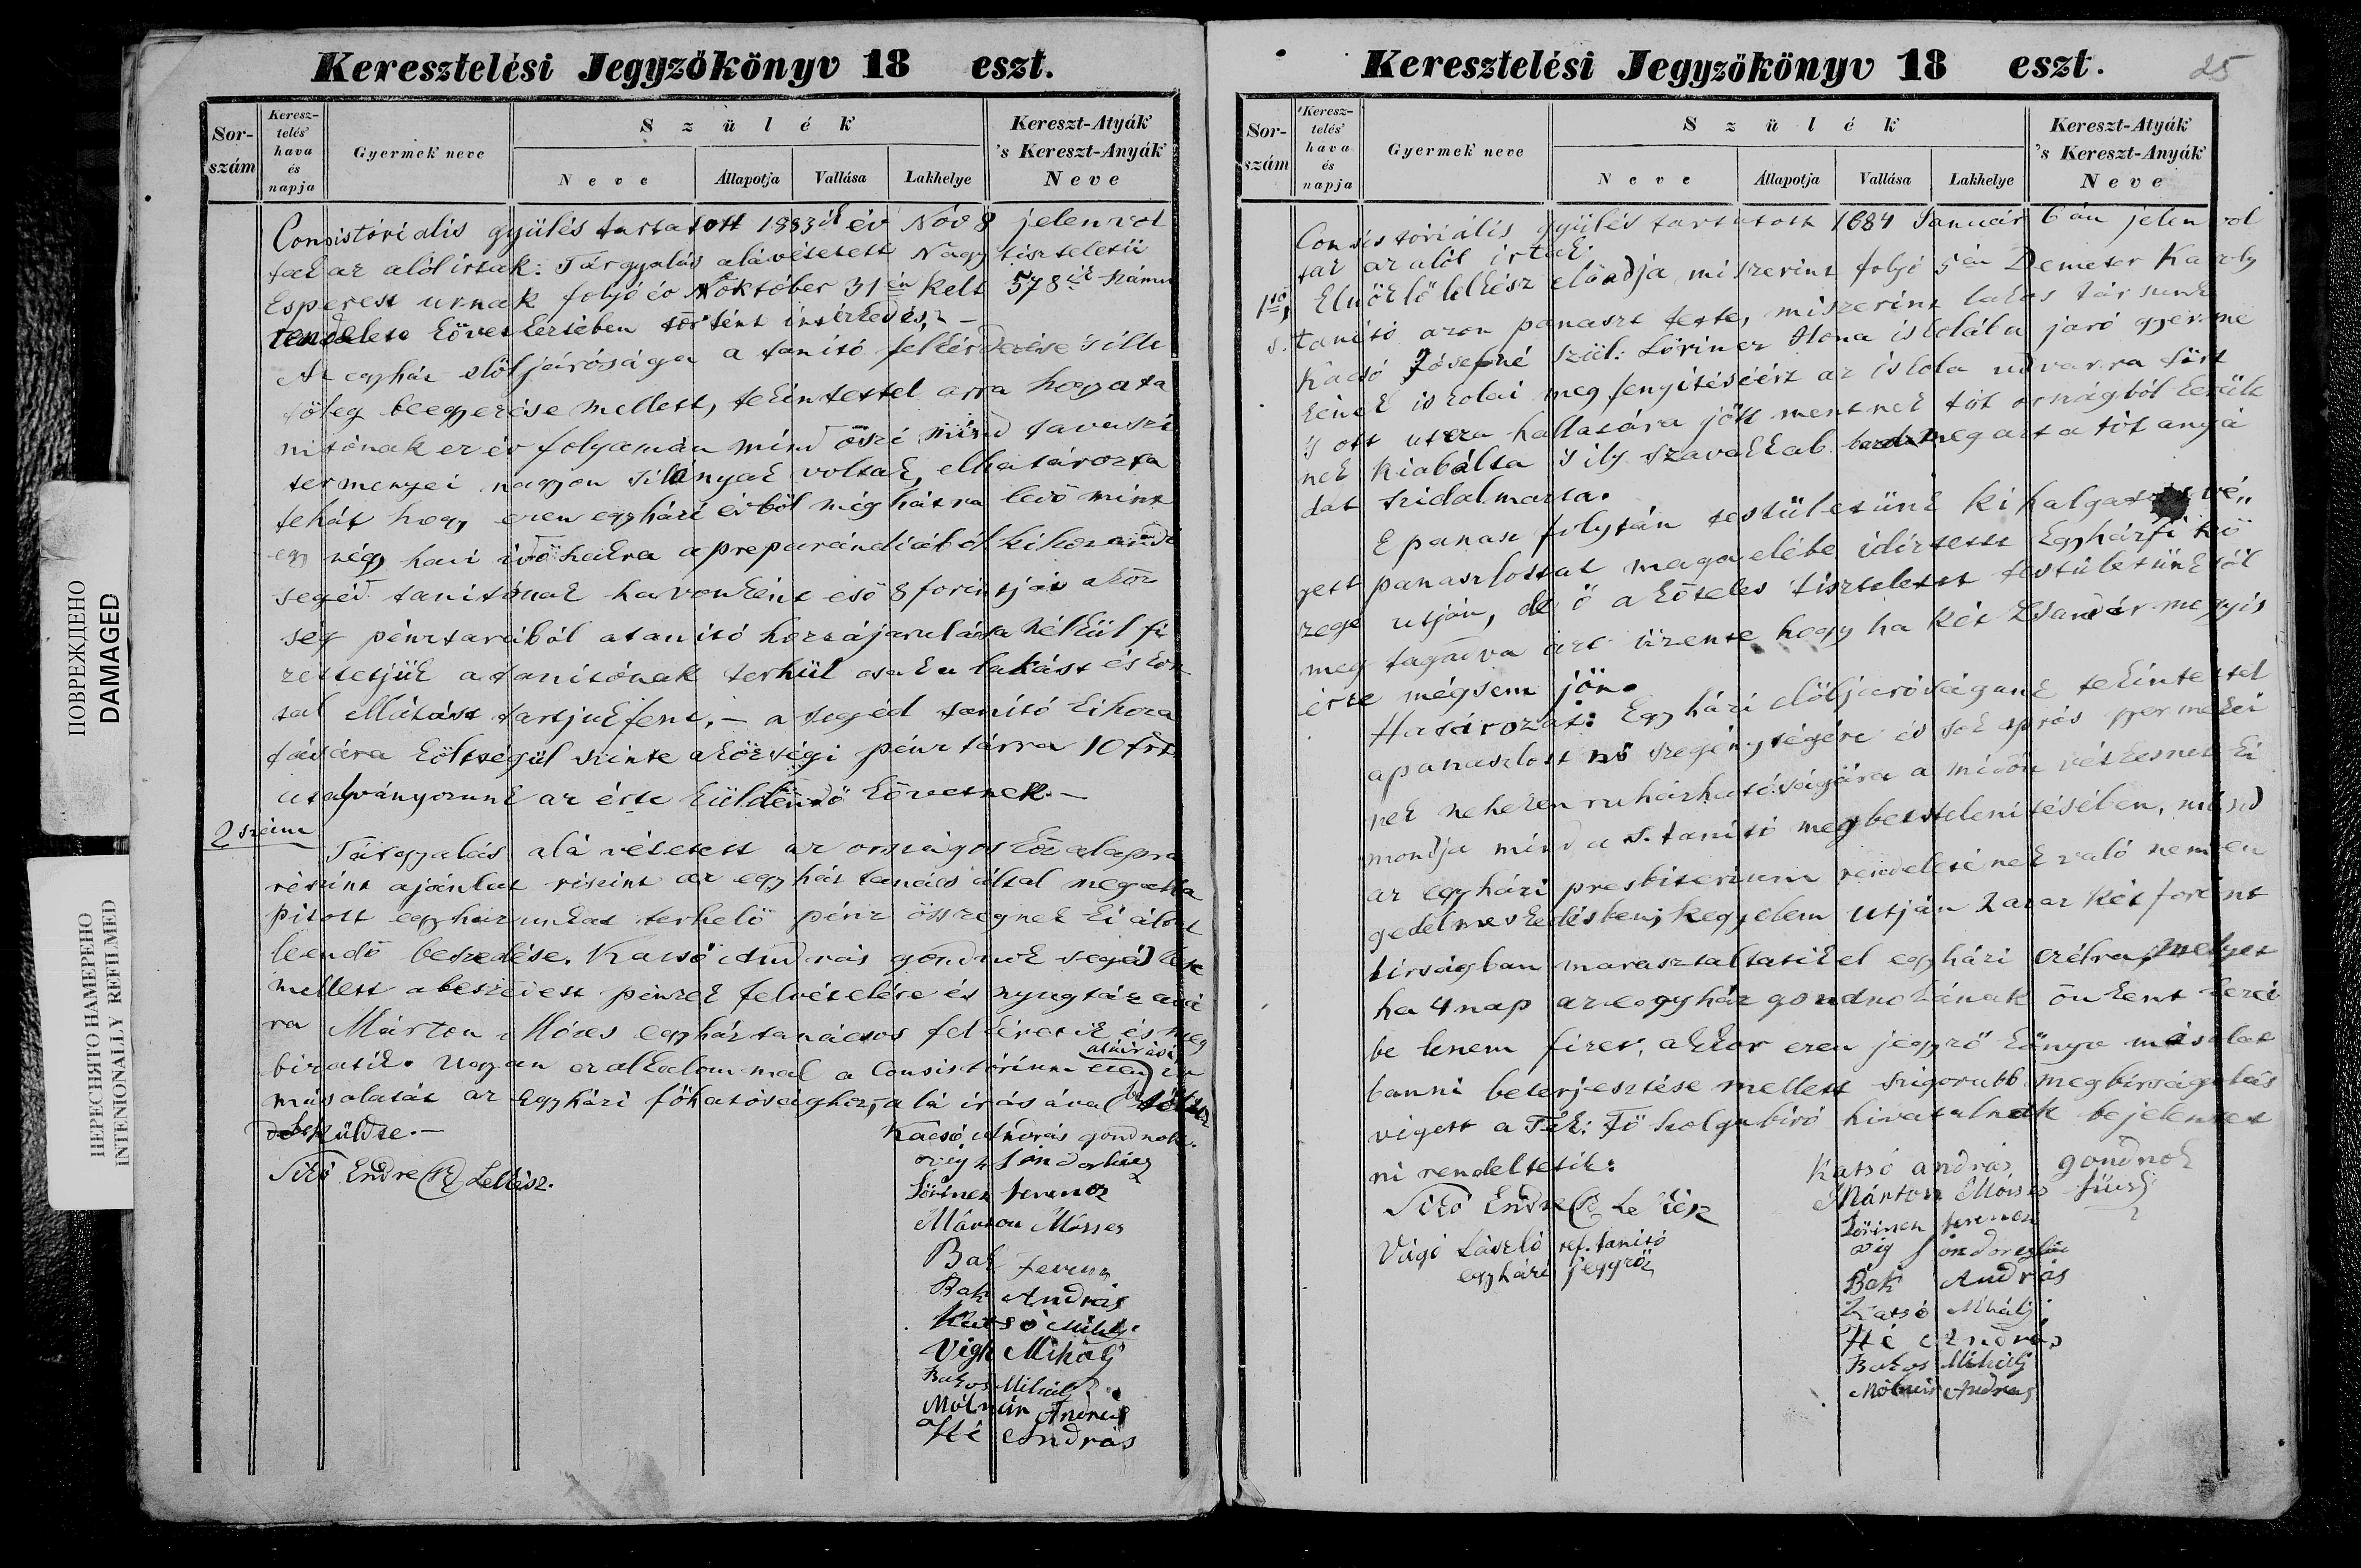 Keresztelési Jegyzökönyv 18 eszt.
Sor-szám
Keresz-telés' hava és napja
Gyermek neve
Szülék
Neve
Állapotja
Vallása
Lakhelye
Kereszt-Atyák 's Kereszt-Anyák Neve
Consistoriális gyülés tartatott 1883ik év Nov 8 jelen vol
tak az alólirtak: Tárgyalás alá vétetett Nagy tiszteletü
Esperest urnak folyó év október 31én kelt 578ik számu
rendelete következtében történt intézkedés, –
Az egyház elöljárósága a tanitó felkérdezése s ille
töleg beegyezése mellett, tekintettel arra hogy a ta
nitónak ez év folyamán mind öszi mind tavaszi
terményei nagyon silányak voltak, elhatározta
tehát hogy ezen egyházi évböl még hátra levö mint
egy négy havi idö szakra a preparándiából kihozandó
segéd tanitónak havonként esö 8 forintját a köz
ség pénztarából a tanitó hozzájarulása nélkül fi
zettetjük a tanitónak terhül csak a lakást és kosz
tal ellátást tartjuk fenn, – a segéd tanitó kihoza
tására költségül szinte a községi pénztárra 10 frt
utalványozunk az érte küldendö követnek. –
2 szám
Tárgyalás alá vétetett az országos közalapra
részint ajánlat részint az egyház tanács által megálla
pitott egyházunkat terhelö pénz összegnek ki álont
leendö beszedése. Kacsó András gondnok segéd lete
mellett a beszedett pénzek felvételére és nyugtázásá
ra Márton Mózes egyház tanácsos felkéretik és meg
bizatik. Ugyan ez alkalommal a Consistórium ezen
aláirási iv
másolatát az Egyházi föhatósághoz, alá irásával
be küldte. –
Kacsó András gondnok.
Sikó Endre Lelkész.
vig Sándor
Lörincz ferencz
Márton Mózses
Bak ferencz
Bak András
Katsó Mihály
Vigh Mihály
Bakos Mihály
Mólnár András
Hé András
ПОВРЕЖДЕНО
DAMAGED
ПЕРЕСНЯТО НАМЕРЕНО
INTENIONALLY REFILMED
Keresztelési Jegyzökönyv 18 eszt.
25
Sor-szám
Keresz-telés' hava és napja
Gyermek neve
Szülék
Neve
Állapotja
Vallása
Lakhelye
Kereszt-Atyák 's Kereszt-Anyák Neve
Consistoriális gyülés tartatott 1884 Január 6 án jelen vol
tak az alól irtak:
1ször, Elnöklö lelkész elöadja miszerint folyó 5én Demeter Karoly
s. tanitó azon panaszt tette, miszerint lakos társunk
Kacsó Józsefné szül: Lörincz Ilona iskolába járó gyerme
kének iskolai megfenyitéséért az iskola udvarra jött
s ott utcza hallatára jött mentnek tót országból került
nek kiabálta s ily szavakkal meg azt a tót anyá
dat szidalmazta.
E panasz folytán testületünk kihalgatás vé„
gett panaszlottat maga elébe idéztette Egyházfi kö
zege utján, de ö a köteles tiszteletet testületünktöl
meg tagadva azt üzente hogy ha két zsandár megyis
érte mégsem jön.
Határozat: Egyházi elöljaróságunk tekintettel
a panaszlott nö szegénységére és sok apró gyermekei
nek nehezen ruházhatóságára a midön vétkesnek ki
mondja mind a s. tanitó megbecstelenitésében, mind
az egyházi presbiterium rendeletének való nem en
gedelmeskedésben; kegyelem utján 2 azaz két forint
birságban marasztaltatik el egyházi czélra, melyet
ha 4 nap az egyház gondnokának önként kezei
be lenem fizet, akkor ezen jegyzö könyv másolat
banni beterjesztése mellett szigorubb megbirságolás
végett a Ték: Fö szolgabiró hivatalnak bejelentet
ni rendeltetik:
Katsó andrás gondnok
Sikó Endre Lelkész
Márton Mózes
Lörincz ferencz
Vági László ref. tanitó
egyházi jegyzö
vig Sándor
Bak András
Katsó Mihály
Hé András
Bakos Mihály
Mólnár András